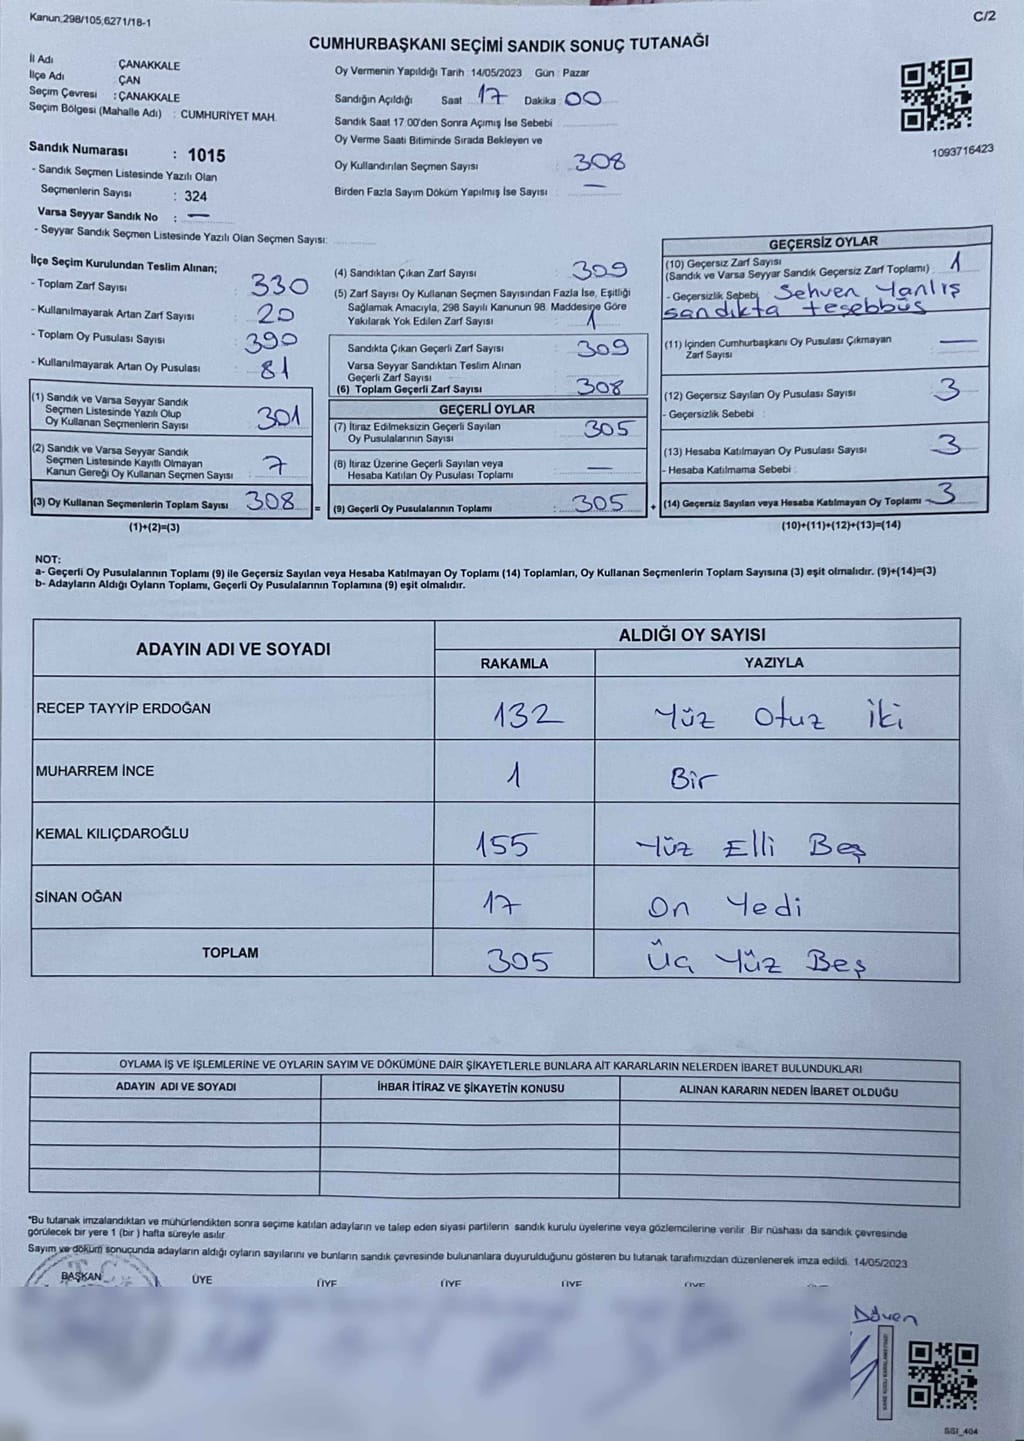 Kanun;298/105,6271/18-1
C/2
CUMHURBAŞKANI SEÇİMİ SANDIK SONUÇ TUTANAĞI
İl Adı ÇANAKKALE
İlçe Adı ÇAN
Seçim Çevresi : ÇANAKKALE
Seçim Bölgesi (Mahalle Adı) : CUMHURİYET MAH.
Sandık Numarası : 1015
- Sandık Seçmen Listesinde Yazılı Olan
Seçmenlerin Sayısı : 324
Varsa Seyyar Sandık No : —
- Seyyar Sandık Seçmen Listesinde Yazılı Olan Seçmen Sayısı:
Oy Vermenin Yapıldığı Tarih : 14/05/2023 Gün : Pazar
Sandığın Açıldığı Saat 17 Dakika : 00
Sandık Saat 17.00'den Sonra Açımış İse Sebebi
Oy Verme Saati Bitiminde Sırada Bekleyen ve
Oy Kullandırılan Seçmen Sayısı : 308
Birden Fazla Sayım Döküm Yapılmış İse Sayısı —
1093716423
İlçe Seçim Kurulundan Teslim Alınan;
- Toplam Zarf Sayısı 330
- Kullanılmayarak Artan Zarf Sayısı 20
- Toplam Oy Pusulası Sayısı 390
- Kullanılmayarak Artan Oy Pusulası 81
(1) Sandık ve Varsa Seyyar Sandık
Seçmen Listesinde Yazılı Olup
Oy Kullanan Seçmenlerin Sayısı 301
(2) Sandık ve Varsa Seyyar Sandık
Seçmen Listesinde Kayıtlı Olmayan
Kanun Gereği Oy Kullanan Seçmen Sayısı 7
(3) Oy Kullanan Seçmenlerin Toplam Sayısı 308 =
(1)+(2)=(3)
(4) Sandıktan Çıkan Zarf Sayısı 309
(5) Zarf Sayısı Oy Kullanan Seçmen Sayısından Fazla İse, Eşitliği
Sağlamak Amacıyla, 298 Sayılı Kanunun 98. Maddesine Göre
Yakılarak Yok Edilen Zarf Sayısı 1
Sandıkta Çıkan Geçerli Zarf Sayısı 309
Varsa Seyyar Sandıktan Teslim Alınan
Geçerli Zarf Sayısı
(6) Toplam Geçerli Zarf Sayısı 308
GEÇERLİ OYLAR
(7) İtiraz Edilmeksizin Geçerli Sayılan
Oy Pusulalarının Sayısı 305
(8) İtiraz Üzerine Geçerli Sayılan veya
Hesaba Katılan Oy Pusulası Toplamı —
(9) Geçerli Oy Pusulalarının Toplamı : 305 +
GEÇERSİZ OYLAR
(10) Geçersiz Zarf Sayısı
(Sandık ve Varsa Seyyar Sandık Geçersiz Zarf Toplamı) 1
- Geçersizlik Sebebi Sehven Yanlış
sandıkta teşebbüs
(11) İçinden Cumhurbaşkanı Oy Pusulası Çıkmayan
Zarf Sayısı —
(12) Geçersiz Sayılan Oy Pusulası Sayısı 3
- Geçersizlik Sebebi :
(13) Hesaba Katılmayan Oy Pusulası Sayısı 3
- Hesaba Katılmama Sebebi :
(14) Geçersiz Sayılan veya Hesaba Katılmayan Oy Toplamı 3
(10)+(11)+(12)+(13)=(14)
NOT:
a- Geçerli Oy Pusulalarının Toplamı (9) ile Geçersiz Sayılan veya Hesaba Katılmayan Oy Toplamı (14) Toplamları, Oy Kullanan Seçmenlerin Toplam Sayısına (3) eşit olmalıdır. (9)+(14)=(3)
b- Adayların Aldığı Oyların Toplamı, Geçerli Oy Pusulalarının Toplamına (9) eşit olmalıdır.
ADAYIN ADI VE SOYADI ALDIĞI OY SAYISI
RAKAMLA YAZIYLA
RECEP TAYYİP ERDOĞAN 132 Yüz Otuz İki
MUHARREM İNCE 1 Bir
KEMAL KILIÇDAROĞLU 155 Yüz Elli Beş
SİNAN OĞAN 17 On Yedi
TOPLAM 305 Üç Yüz Beş
OYLAMA İŞ VE İŞLEMLERİNE VE OYLARIN SAYIM VE DÖKÜMÜNE DAİR ŞİKAYETLERLE BUNLARA AİT KARARLARIN NELERDEN İBARET BULUNDUKLARI
ADAYIN ADI VE SOYADI İHBAR İTİRAZ VE ŞİKAYETİN KONUSU ALINAN KARARIN NEDEN İBARET OLDUĞU
*Bu tutanak imzalandıktan ve mühürlendikten sonra seçime katılan adayların ve talep eden siyasi partilerin sandık kurulu üyelerine veya gözlemcilerine verilir. Bir nüshası da sandık çevresinde
görülecek bir yere 1 (bir ) hafta süreyle asılır.
Sayım ve döküm sonucunda adayların aldığı oyların sayılarını ve bunların sandık çevresinde bulunanlara duyurulduğunu gösteren bu tutanak tarafımızdan düzenlenerek imza edildi. 14/05/2023
BAŞKAN ÜYE ÜYE ÜYE ÜYE ÜYE
Döven
SSI_404